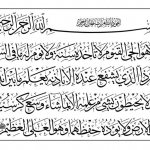 أعوذ بالله من الشيطان الرجيم
الله الرحمن الرحيم
هو الحي القيوم لا تأخذه سنة ولا نوم له ما في
ذا الذي يشفع عنده إلا بإذنه يعلم ما بين
يحيطون بشيء من علمه إلا بما شاء وسع كرسيه
الأرض ولا يؤده حفظهما وهو العلي العظيم